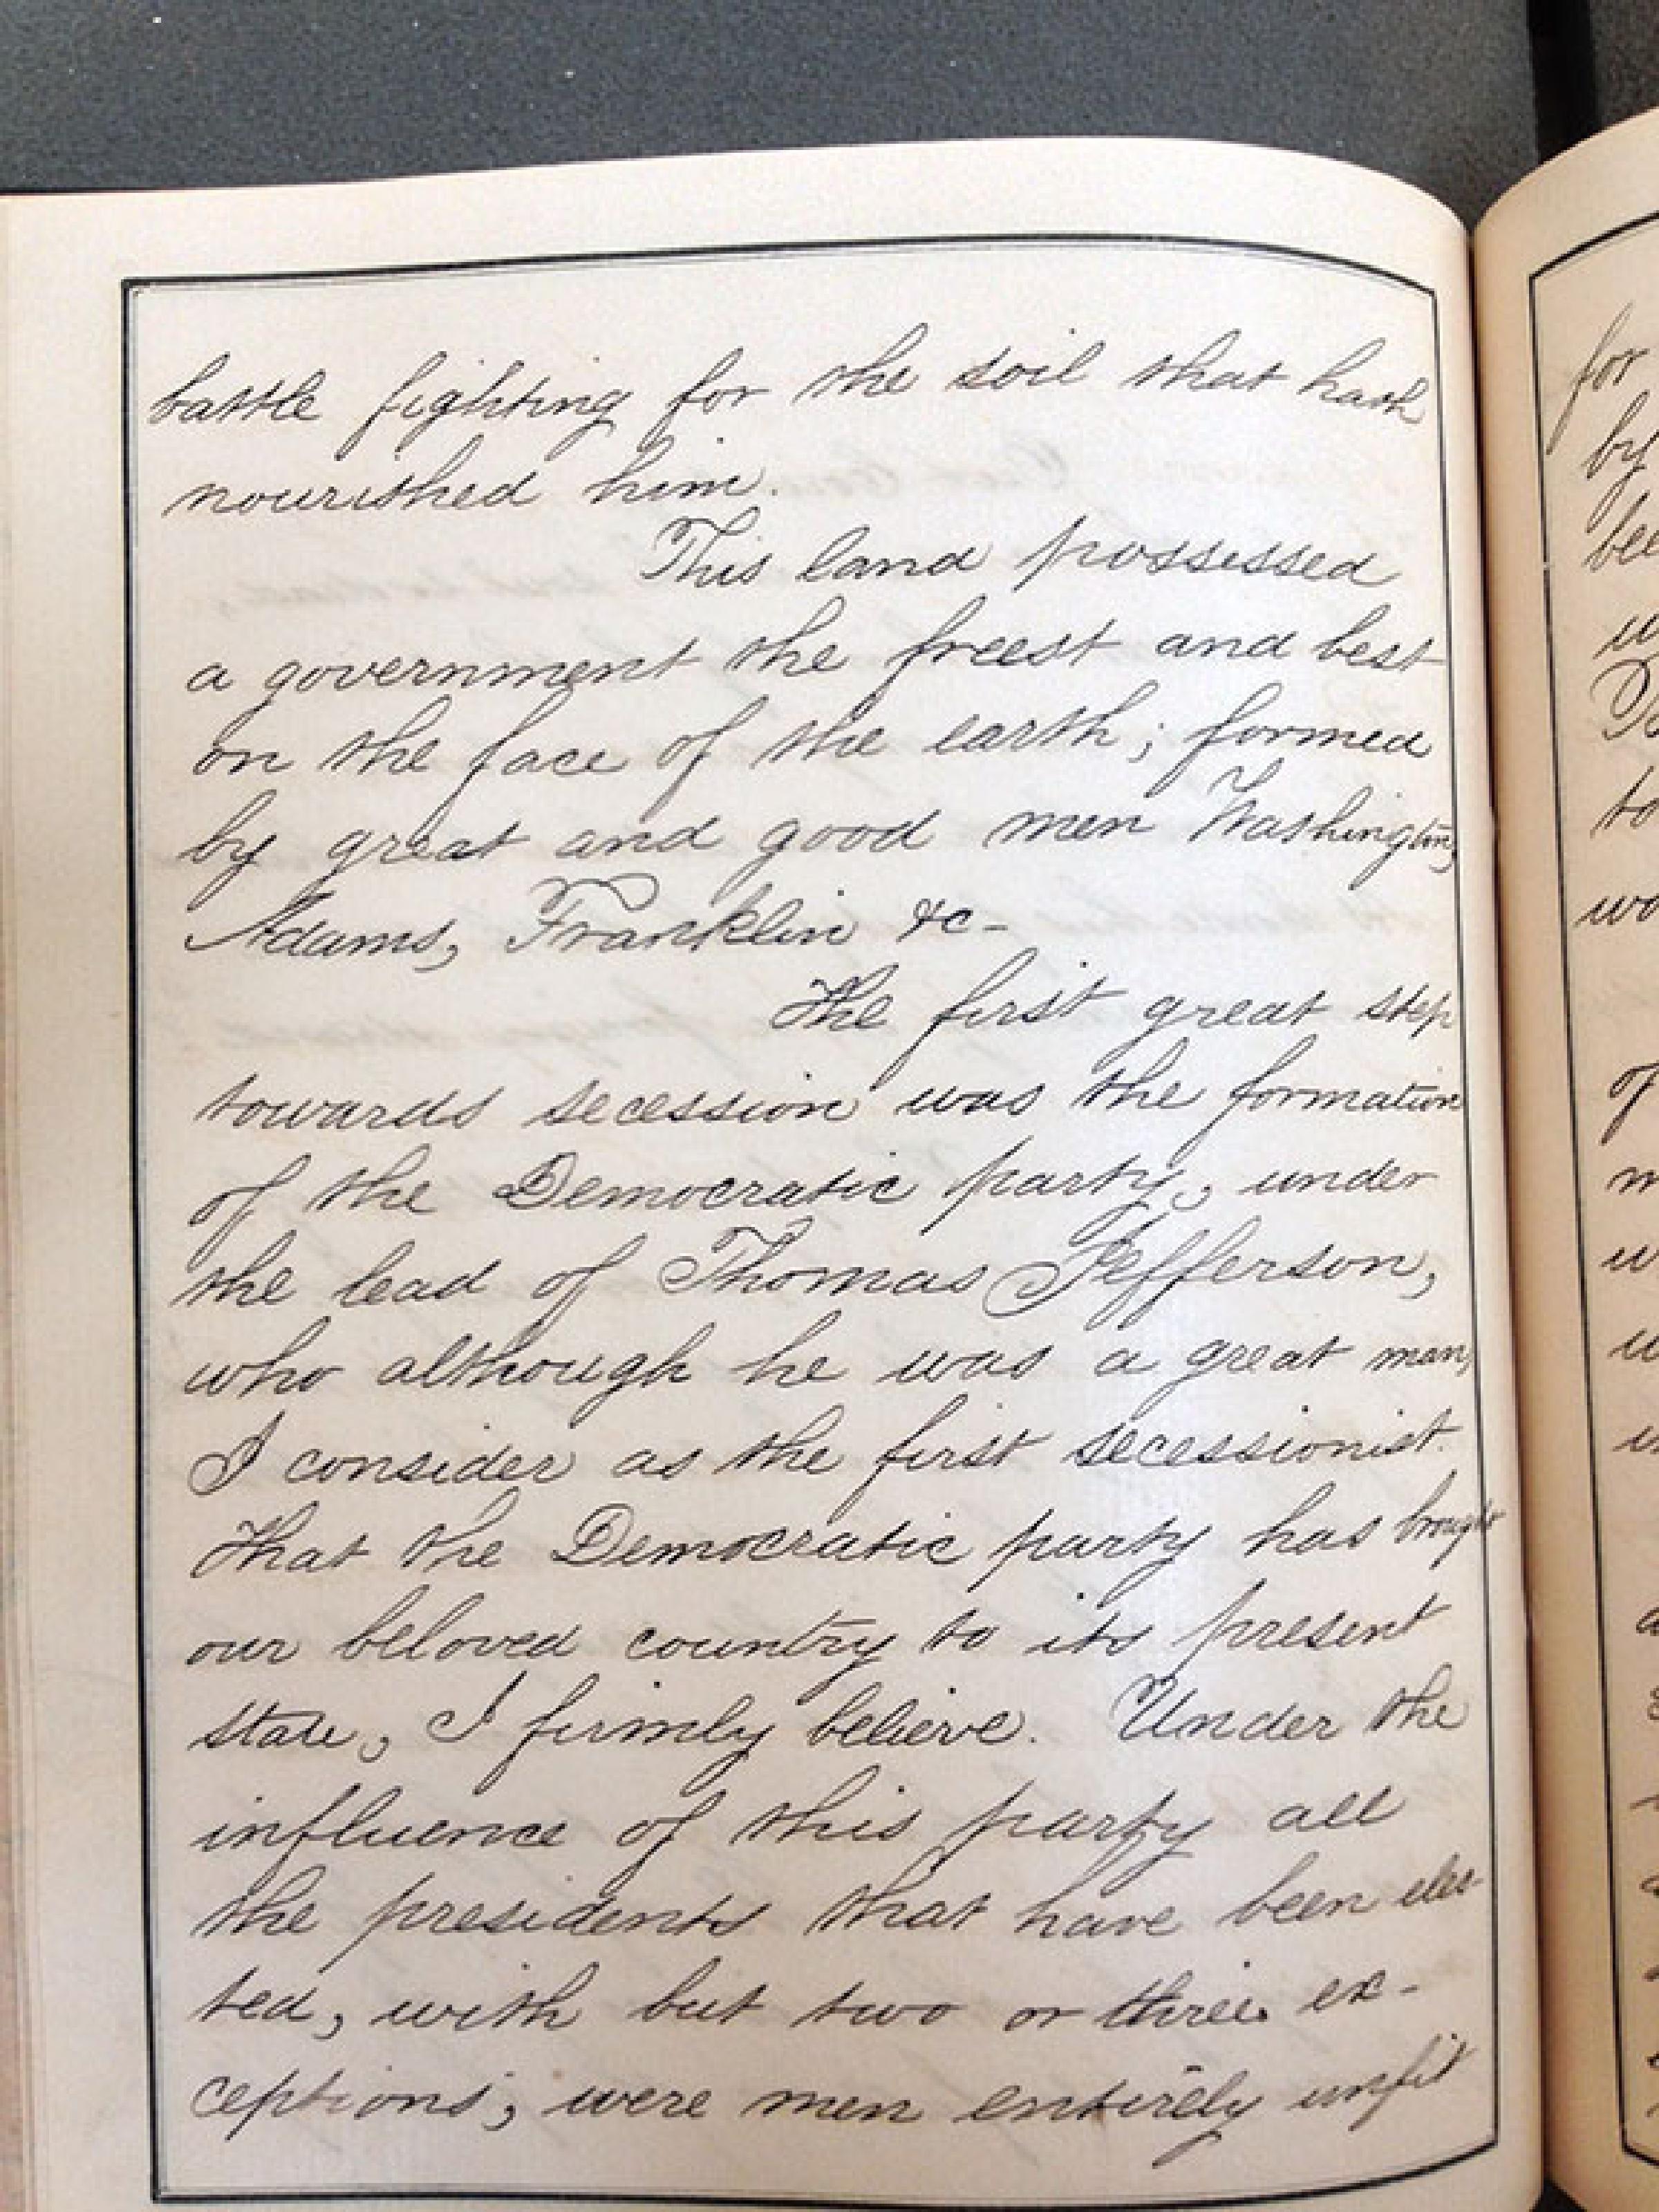 battle fighting for the soil that hath
nourished him.
This land possessed
a government the freest and best
on the face of the earth; formed
by great and good men Washington,
Adams, Franklin &c-
The first great step
towards secession was the formation
of the Democratic party, under
the lead of Thomas Jefferson,
who although he was a great man,
I consider as the first secessionist.
That the Democratic party has brought
our beloved country to its present
state, I firmly believe. Under the
influence of this party all
the presidents that have been elec-
ted, with but two or three ex-
ceptions, were men entirely unfit
for
by
to
of